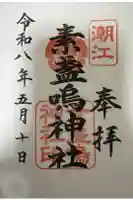 奉拝
潮江
素盞嗚神社
令和八年五月十日